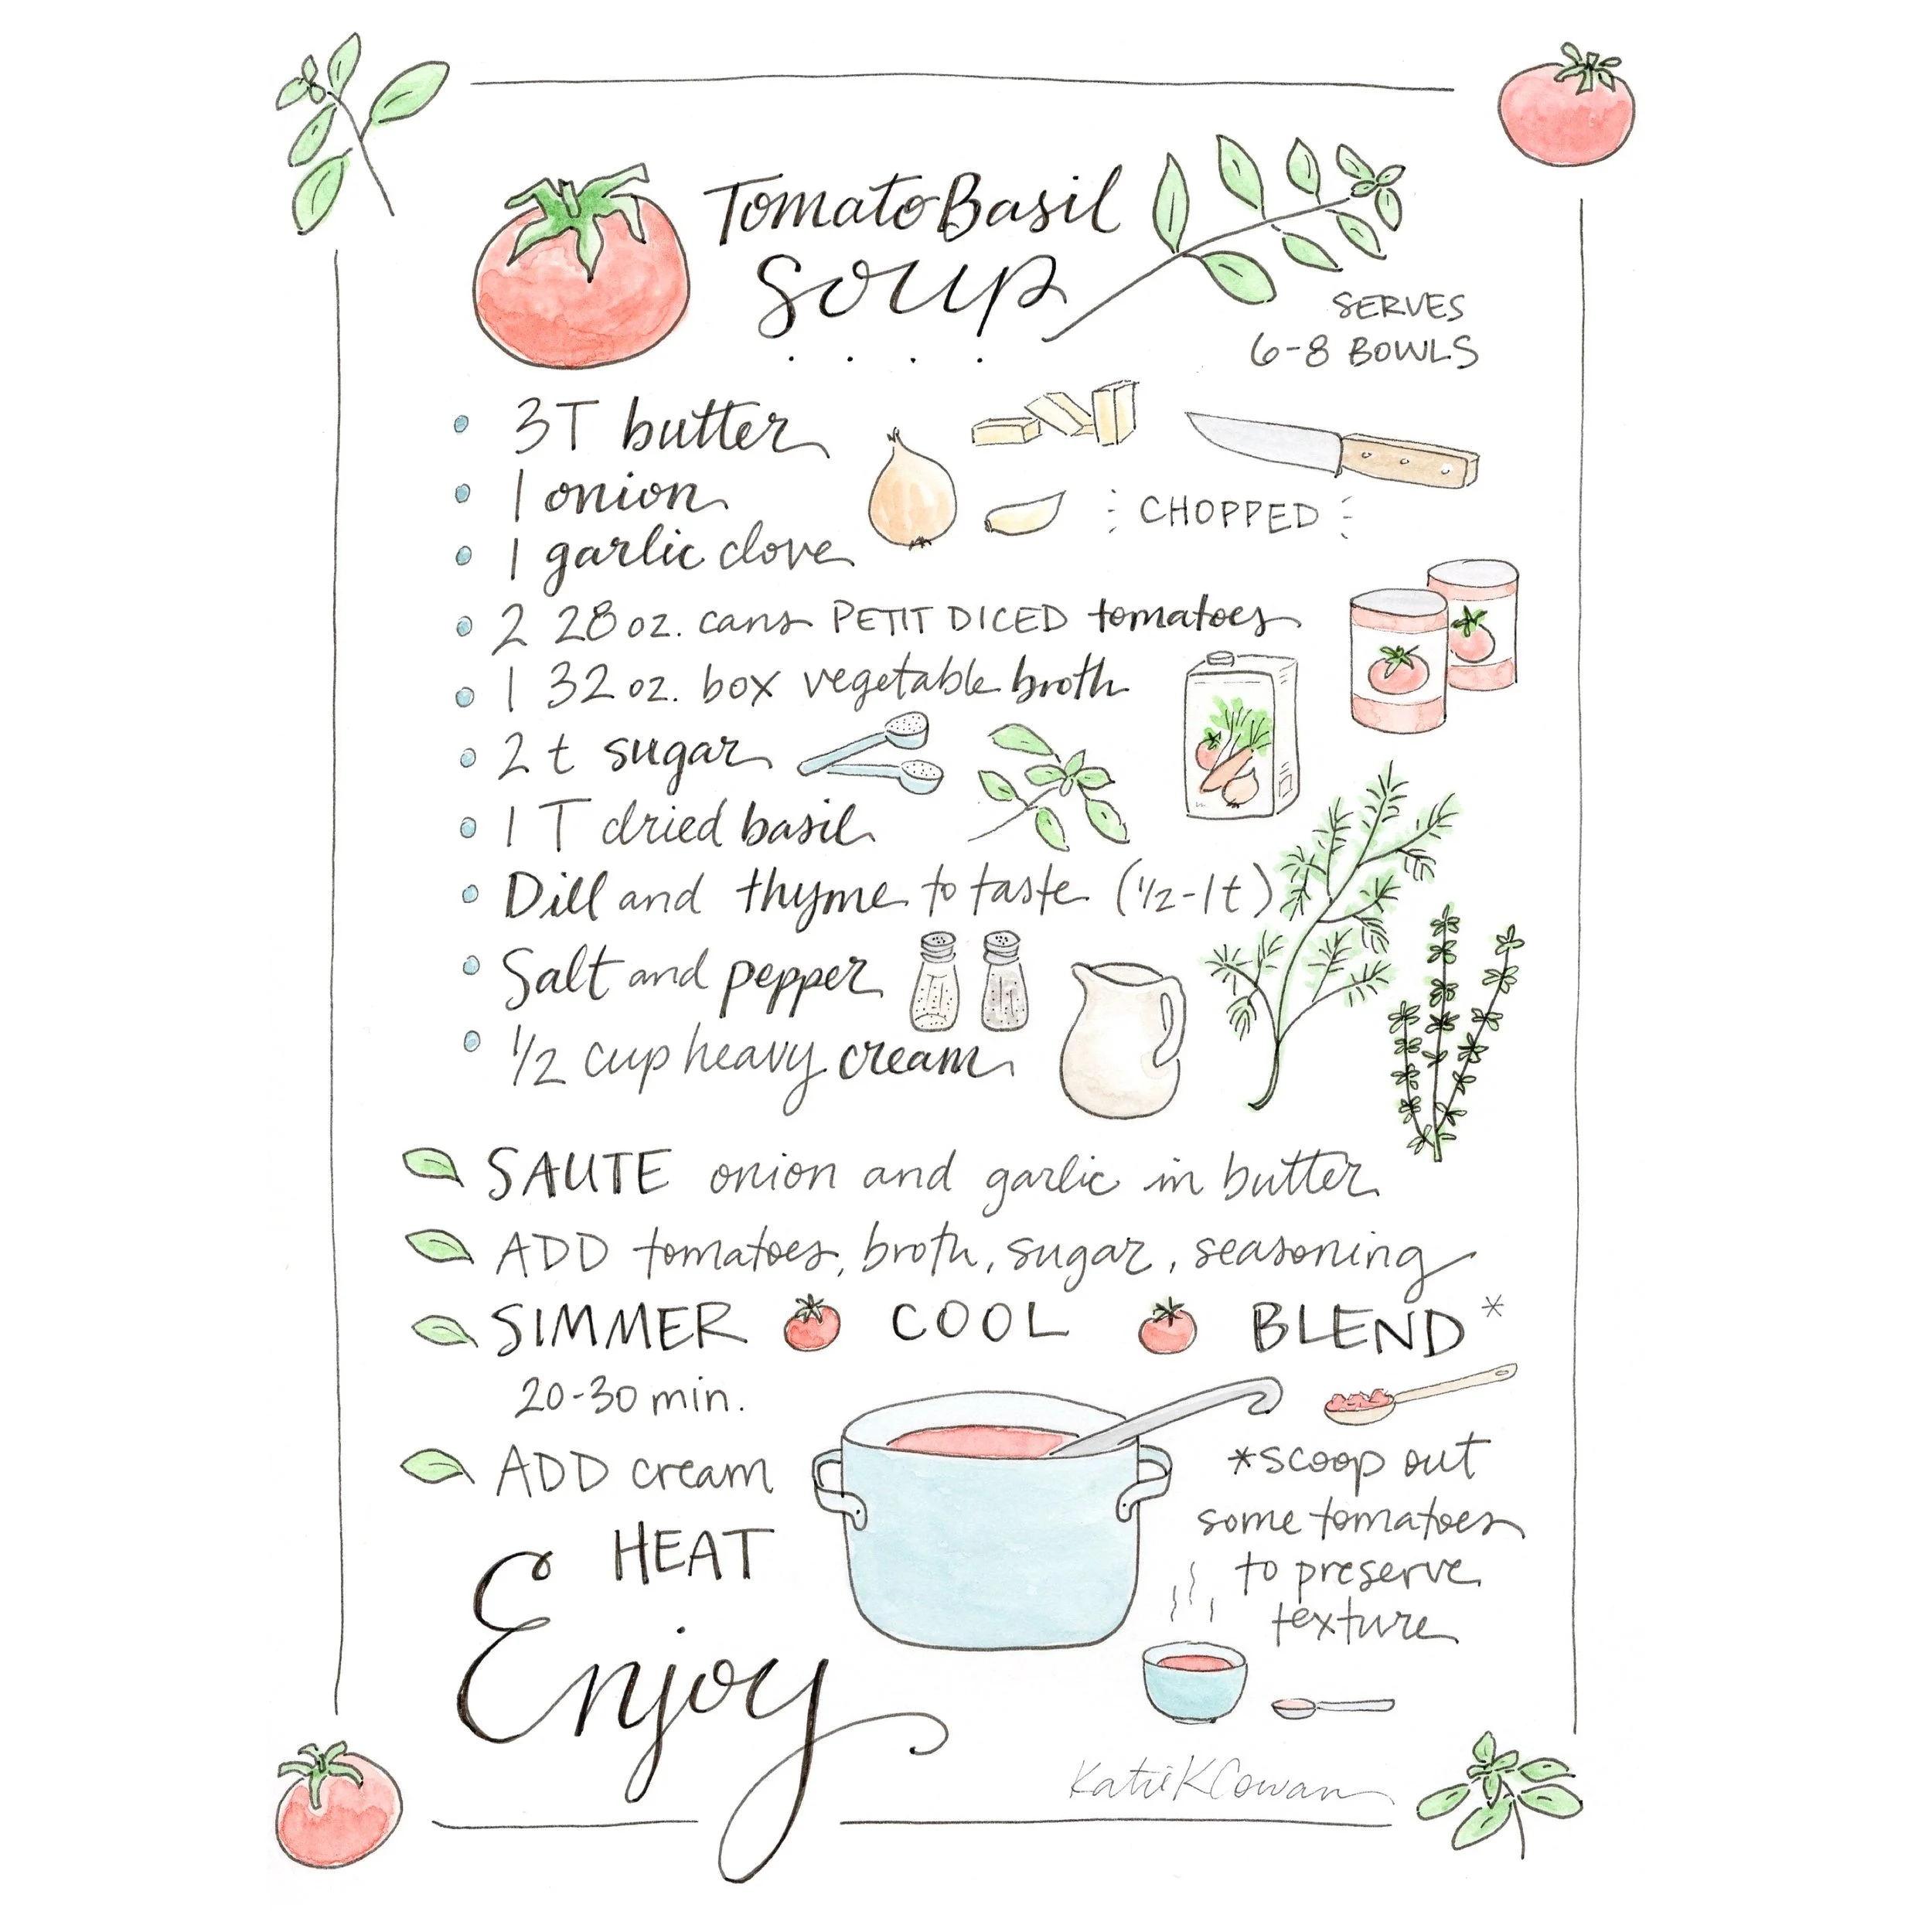 Tomato Basil
Soup
SERVES
6-8 BOWLS
3T butter
1 onion
1 garlic clove
CHOPPED
2 28 oz. cans PETIT DICED tomatoes
1 32 oz. box vegetable broth
2 t sugar
1 T dried basil
Dill and thyme to taste (1/2-1t)
Salt and pepper
1/2 cup heavy cream
SAUTE onion and garlic in butter
ADD tomatoes, broth, sugar, seasoning
SIMMER COOL BLEND*
20-30 min.
ADD cream
HEAT
*scoop out
some tomatoes
to preserve
texture
Enjoy
Katie K Cowan